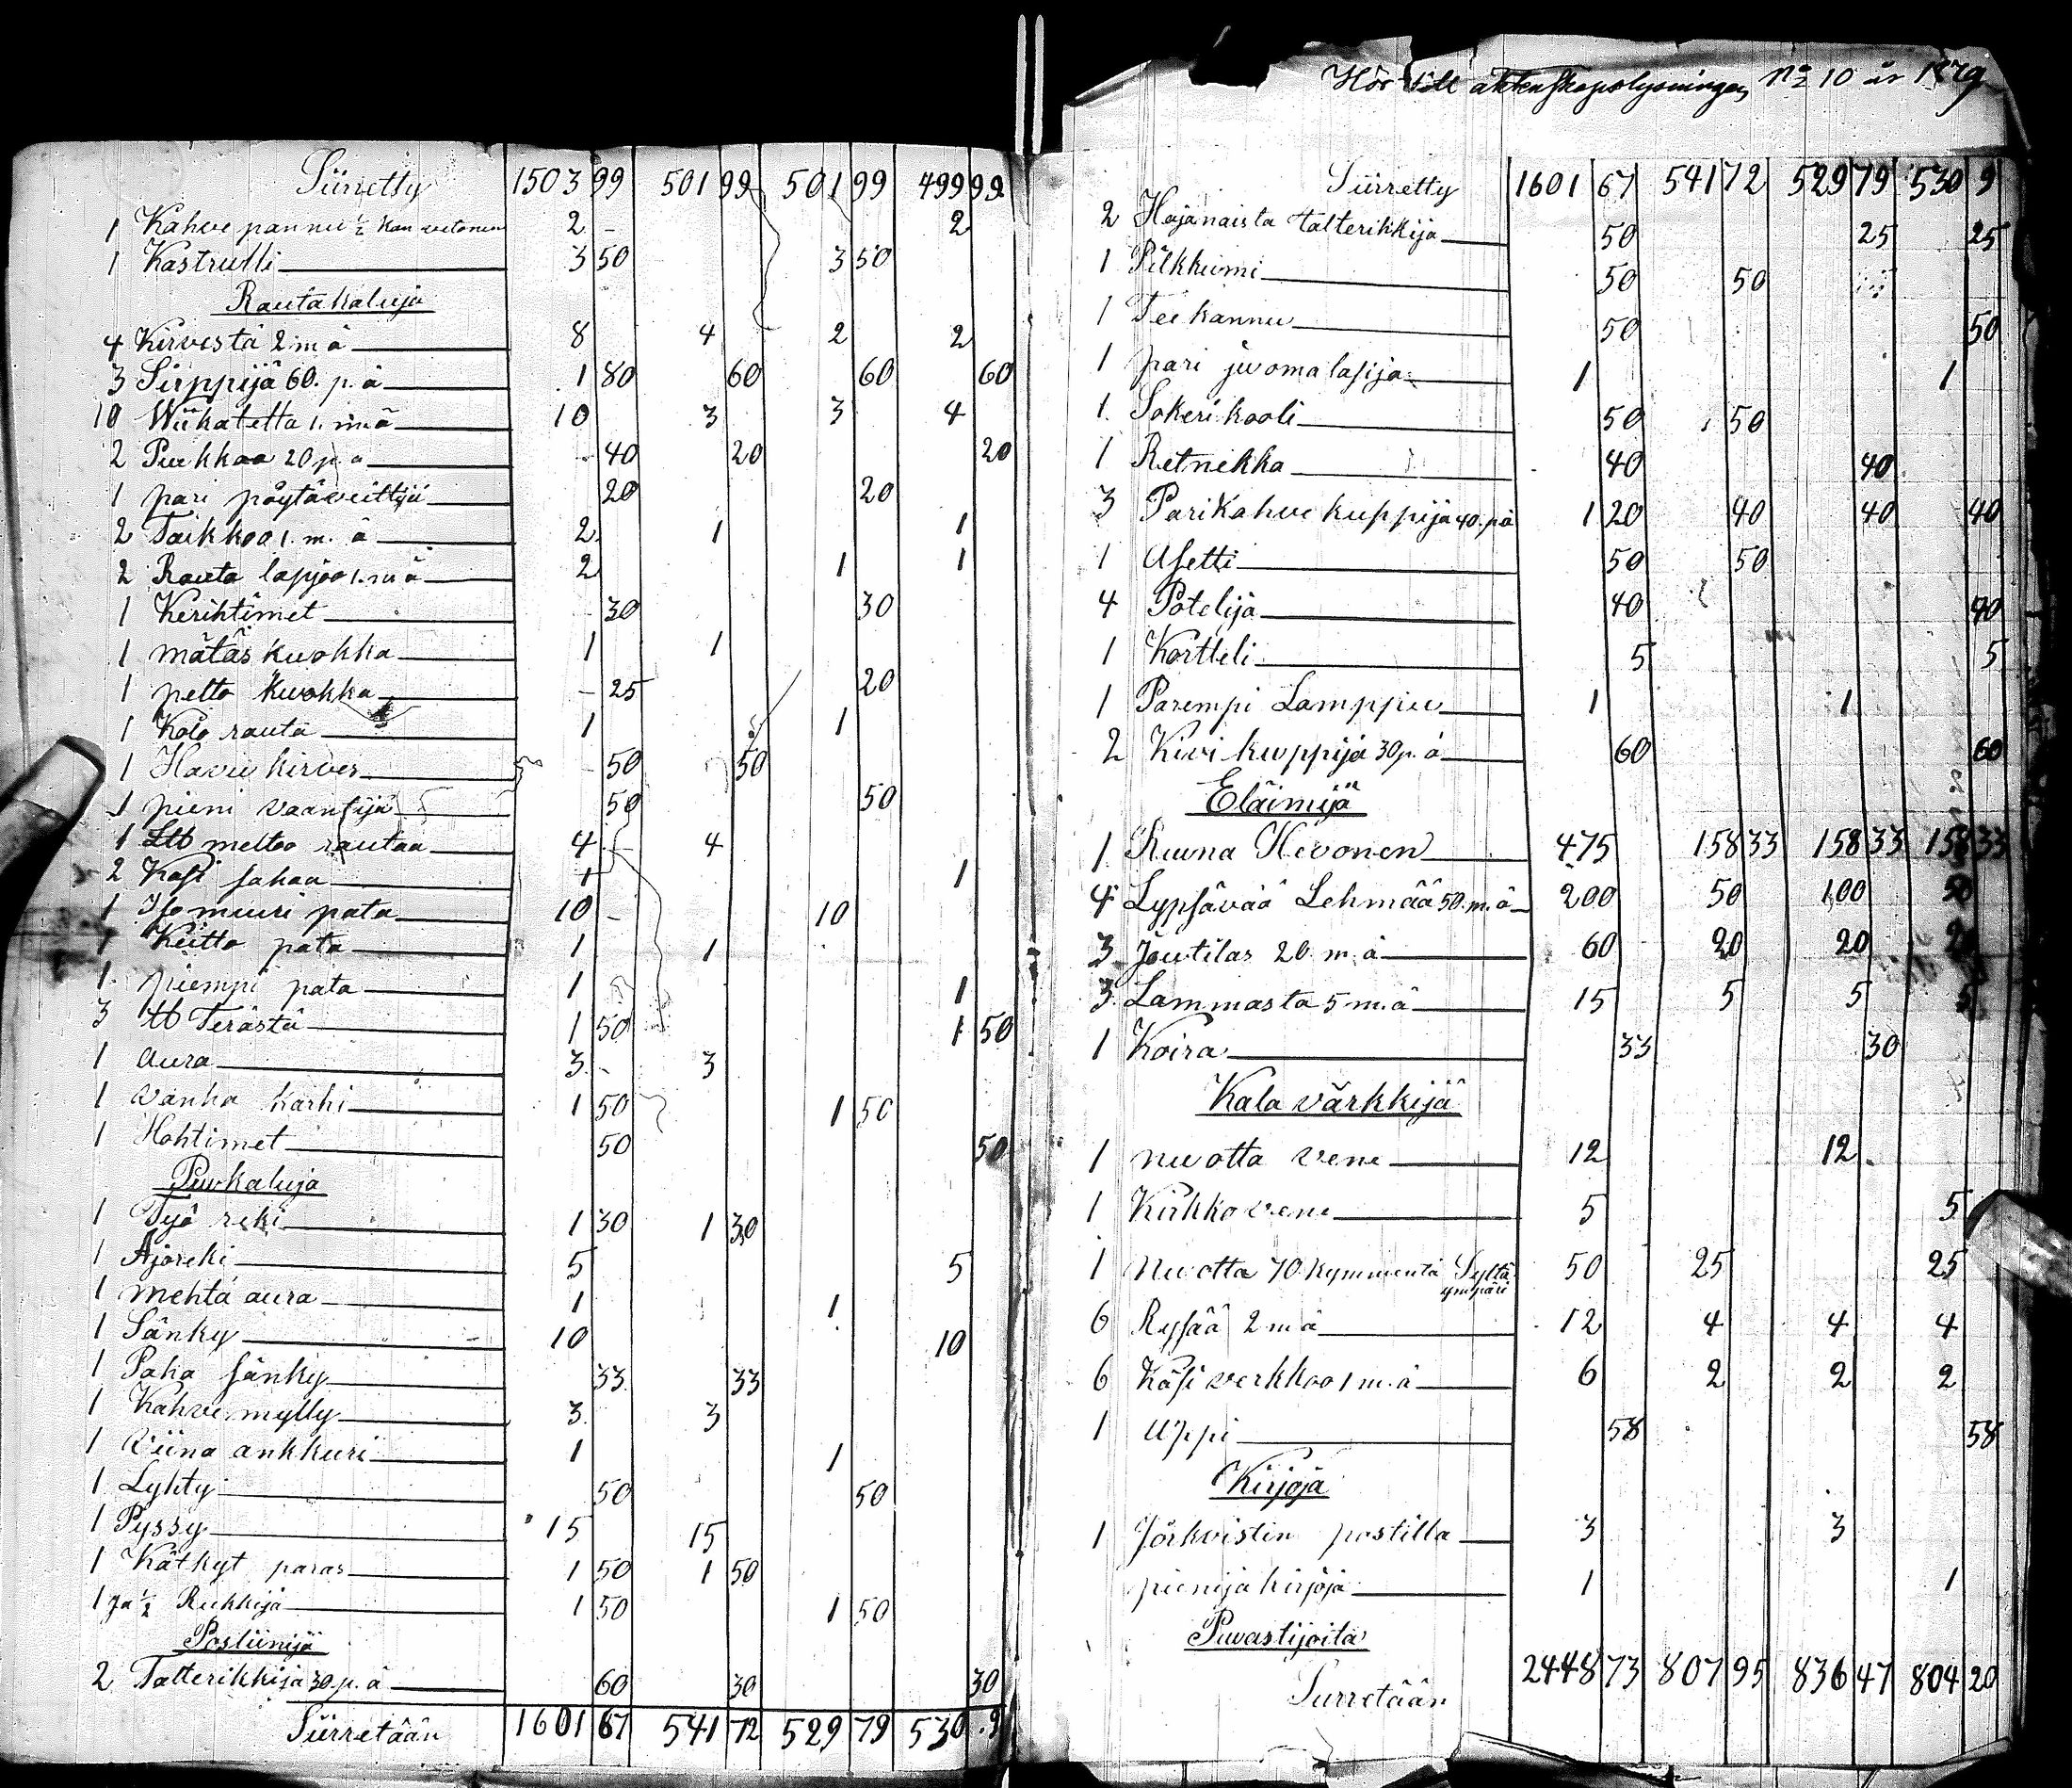 Siirretty 1503 99 501 99 501 99 499 99
1 Kahve pannu ½ kan vetonen 2 - 2
1 Kastrulli 3 50 3 50
Rautakaluja
4 Kirvestä 2 m á 8 4 2 2
3 Sirppijä 60. p. á 1 80 60 60 60
10 Wiikatetta 1. m. á 10 3 3 4
2 Purkkaa 20 p. á - 40 20 20
1 pari pöytäveittjä 20 20
2 Taikkoa 1. m. á 2 1 1
2 Rauta lapjoo 1. m á 2 1 1
1 Kerihtimet - 30 30
1 mätäs kuokka 1 1
1 pelto kuokka - 25 20
1 Kolo rauta 1 1
1 Havu kirves - 50 50
1 pieni vaansijä 50 50
1 Ltt meltoo rautaa 4 - 4
2 Käsi sahaa 1 1
1 Iso muuri pata 10 - 10
1 Keitto pata 1 1
1 piempi pata 1 1
3 tt Terästä 1 50 1 50
1 aura 3 - 3
1 vanha karhi 1 50 1 50
1 Hohtimet 50 50
Puukaluja
1 Työ reki 1 30 1 30
1 Ajoreki 5 5
1 mehtä aura 1 1
1 Sänky 10 10
1 Paha sänky 33 33
1 Kahve mylly 3 3
1 Viina ankkuri 1 1
1 Lyhty 50 50
1 Pyssy 15 15
1 Kätkyt paras 1 50 1 50
1 ja ½ Rukkija 1 50 1 50
Posliinijä
2 Talterikkija 30 p. á 60 30 30
Siirretään 1601 67 541 72 529 79 530 . 9
Hör till äktenskapslysningen No 10 år 1879
Siirretty 1601 67 541 72 529 79 530 9
2 Hajanaista talterikkija 50 25 25
1 Pilkkumi 50 50
1 Tee kannu 50 50
1 pari juoma lasija 1 1
1. Sokeri kooli 50 50
1 Retnikka 40 40
3 Pari Kahve kuppija 40. p á 1 20 40 40 40
1 Asetti 50 50
4 Potelija 40 40
1 Kortteli 5 5
1 Parempi Lamppu 1 1
2 Kivi kuppija 30 p. á 60 60
Eläimijä
1 Ruuna Hevonen 475 158 33 158 33 158 33
4 Lypsävää Lehmää 50. m. á 200 50 100 50
3 Joutilas 20 m. á 60 20 20 20
3 Lammasta 5 m. á 15 5 5 5
1 Koira 33 30
Kala värkkijä
1 nuotta vene 12 12
1 Kirkko vene 5 5
1 nuotta 70 kymmentä Syltä ympäri 50 25 25
6 Rysää 2 m á 12 4 4 4
6 Käsi verkkoo 1 m. á 6 2 2 2
1 Äppi 58 58
Kirjoja
1 Jörkvistin postilla 3 3
pienijä kirjoja 1 1
Puvastijoita
Siirretään 2448 73 807 95 836 47 804 20